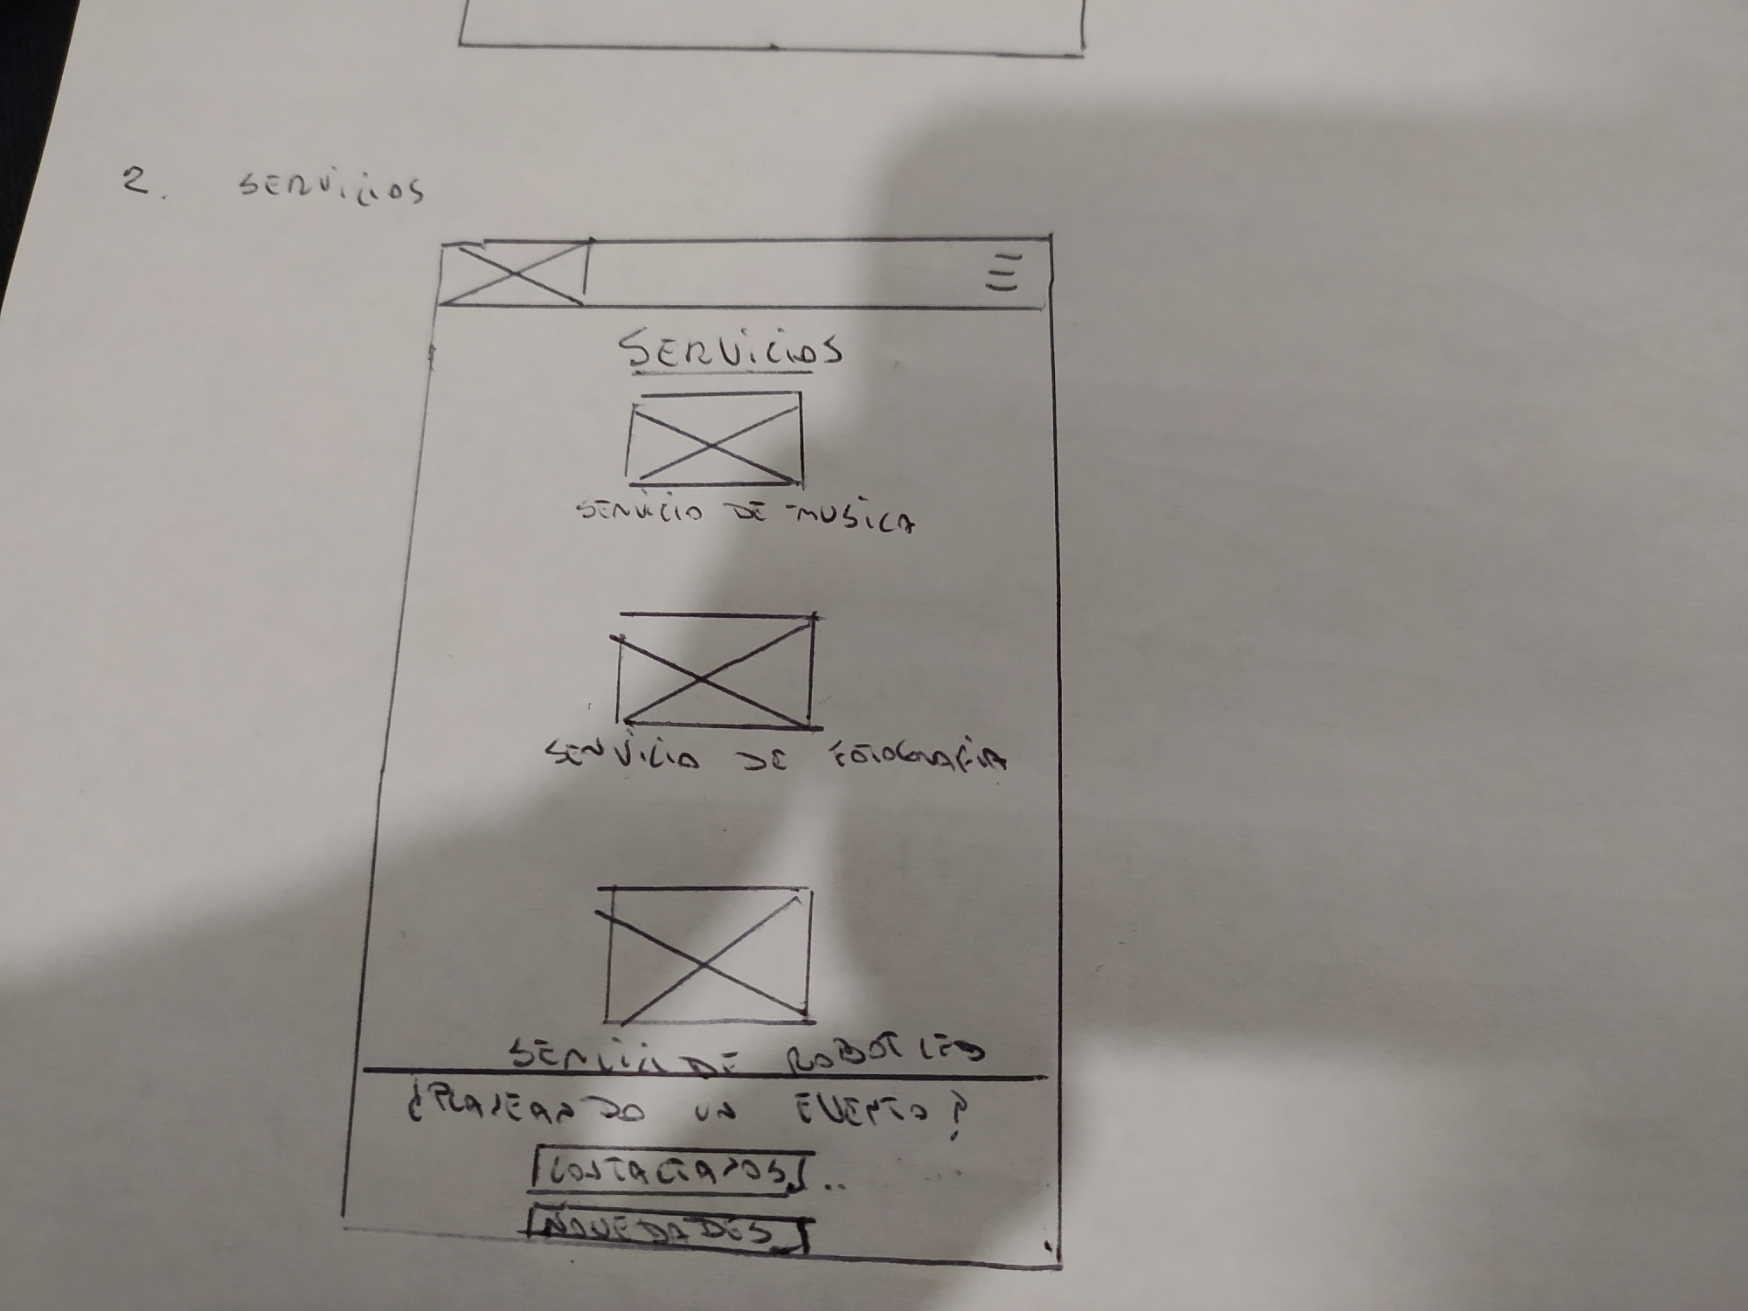 2. SERVICIOS
SERVICIOS
SERVICIO DE MUSICA
SERVICIO DE FOTOGRAFIA
DE ROBOT LED
¿PLANEANDO UN EVENTO?
CONTACTANOS
NOVEDADES